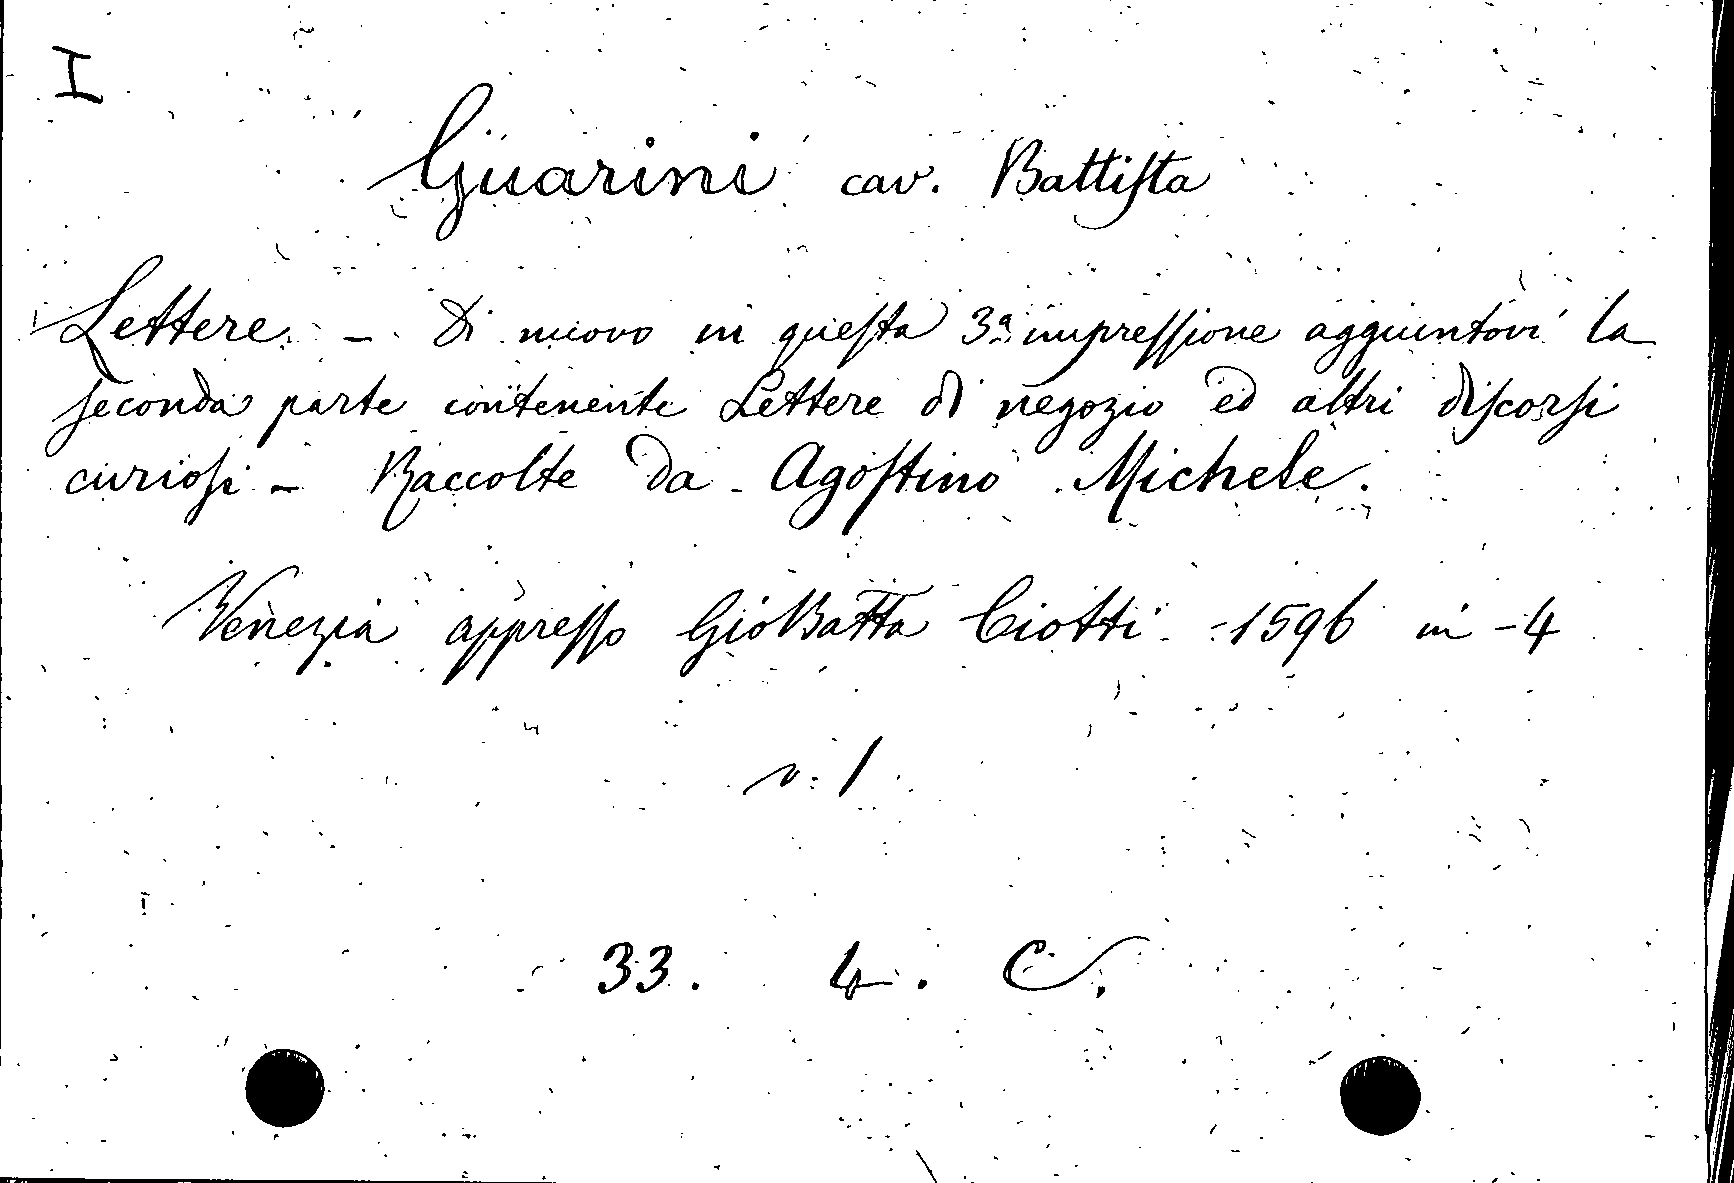 I
Guarini cav. Battista
Lettere. - Di nuovo in questa 3ª impressione aggiuntovi la
seconda parte contenente Lettere di negozio ed altri discorsi
curiosi - Raccolte da Agostino Michele.
Venezia appresso GioBatta Ciotti - 1596 in - 4
v. 1
33. 4. C.